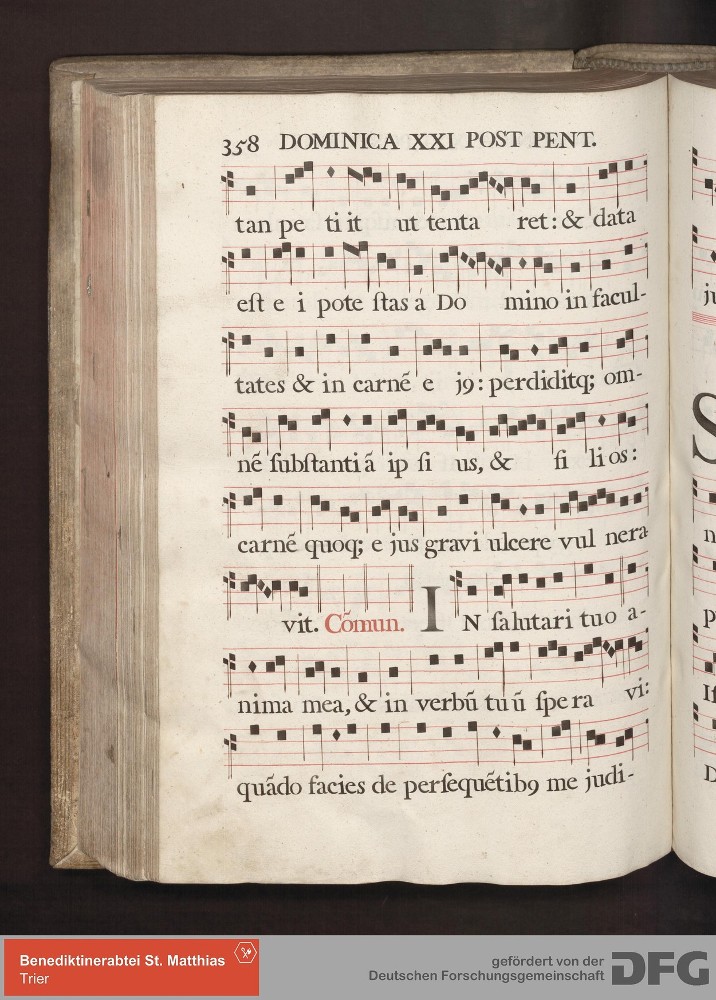 358 DOMINICA XXI POST PENT.
tan pe ti it ut tenta ret: & data
eſt e i pote ſtas á Do mino in facul-
tates & in carnē e j9: perdiditq; om-
nē ſubſtanti ā ip ſi us, & fi li os:
carnē quoq; e jus gravi ulcere vul nera
vit. Cōmun. IN ſalutari tuo a-
nima mea, & in verbū tu ū ſpe ra vi:
quādo facies de perſequētib9 me judi-
Benediktinerabtei St. Matthias
Trier
gefördert von der
Deutschen Forschungsgemeinschaft
DFG